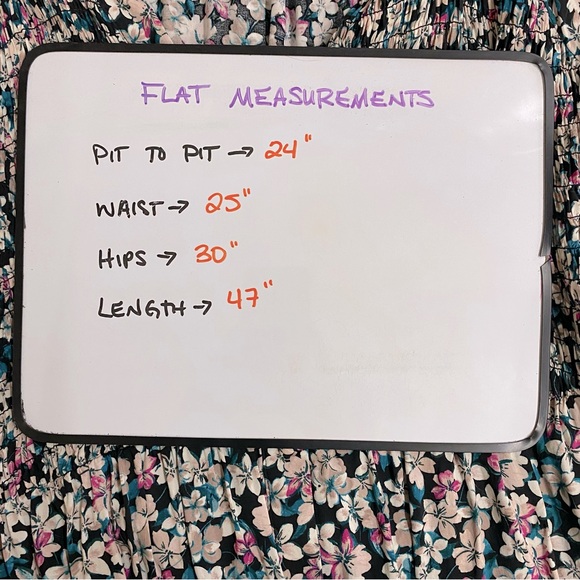 FLAT MEASUREMENTS
PIT TO PIT → 24"
WAIST → 25"
HIPS → 30"
LENGTH → 47"